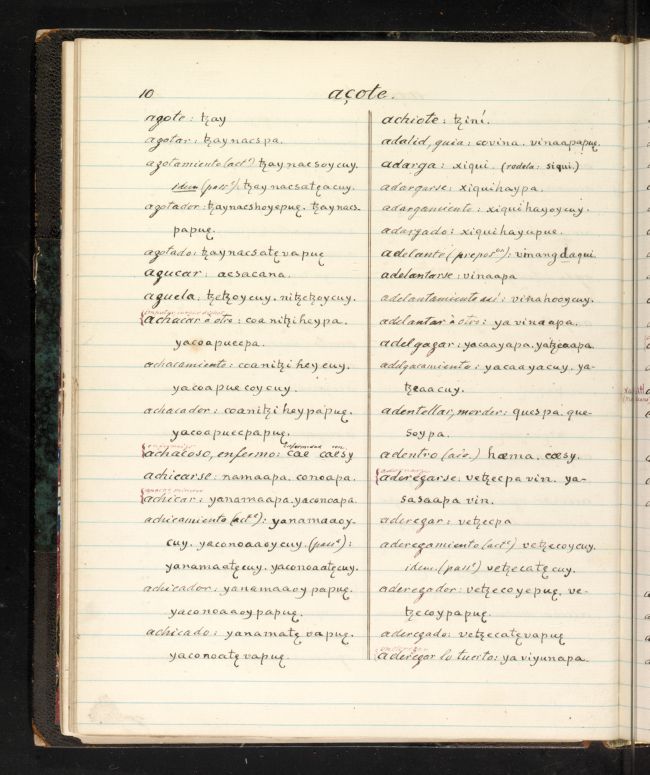 10
açote.
açote: tʒay
açotar: tʒaynacspa.
açotamiento (act.º) tʒaynacsoycuy.
idem (pass.º). tʒaynacsatęacuy.
açotador: tʒaynacshoyepuę. tʒaynacs-
papuę.
açotado: tʒaynacsatęvapuę
açucar: acsacana.
açuela: tʒetʒoycuy. nitʒętʒoycuy.
achacar à otro: coanitʒiheypa.
yacoapuecpa.
achacamiento: coanitʒi hey cuy.
yacoapuecoycuy.
achacador: coanitʒiheypapuę.
yacoapuecpapuę.
achacoso, enfermo: cae caesy
achicarse: namaapa. conoapa.
achicar: yanamaapa. yaconoapa.
achicamiento (act.º): yanamaaoy-
cuy. yaconoaaoycuy. (pass.º):
yanamaatęcuy. yaconoaatęcuy.
achicador: yanamaaoy papuę.
yaconoaaoypapuę.
achicado: yanamatę vapuę.
yaconoatęvapuę.
achiote: tʒiní.
adalid, guia: covina. vinaapapuę.
adarga: xiqui. (rodela: siqui.)
adargarse: xiquihaypa.
adargamiento: xiquihayoycuy.
adargado: xiquihayupue.
adelante (prepos.on): vinangdaqui.
adelantarse: vinaapa
adelantamiento asi: vinahoòycuy.
adelantar à otro: ya vinaapa.
adelgaçar: yacaayapa. yatʒeaapa.
adelgaçamiento: yacaayacuy. ya-
tʒeaacuy.
adentellar, morder: quespa. que-
soypa.
adentro (aie.) hæma. cæsy.
adereçarse: vetʒecpa vin. ya-
sasaapa vin.
adereçar: vetʒecpa
adereçamiento (act.º) vetʒecoycuy.
idem. (pass.º) vetʒecatęcuy.
adereçador: vetʒecoyepuę. ve-
tʒecoypapuę.
adereçado: vetʒecatęvapuę
adereçar lo tuerto: ya viyunapa.